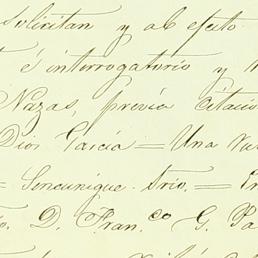 solicitan y al efecto
é interrogatorio y
Nazas, previa citacio
Dios Garcia = Una
= Srio. = En
D. Fran.co G. Pa